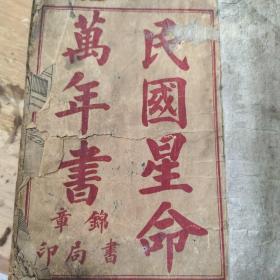 民國星命
萬年書
錦章
書局印